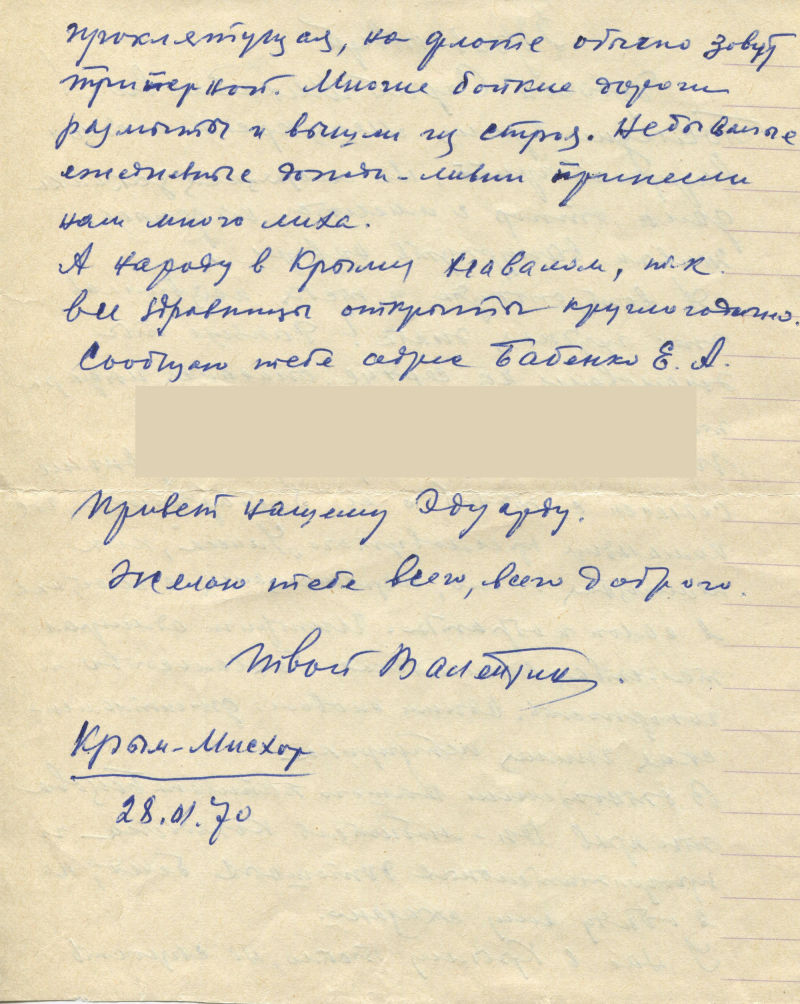 проклятущая, на флоте обычно зовут
Многие бойкие дороги
размыты и вышли из строя. Небывалые
ежедневные дожди-ливни принесли
нам много лиха.
А народу в Крыму навалом, т.к.
все здравницы открыты круглогодично.
Сообщаю тебе адрес Бабенко Е. А.
Привет нашему Эдуарду.
Желаю тебе всего, всего доброго.
Твой Валентин.
Крым-Мисхор
28.01.70